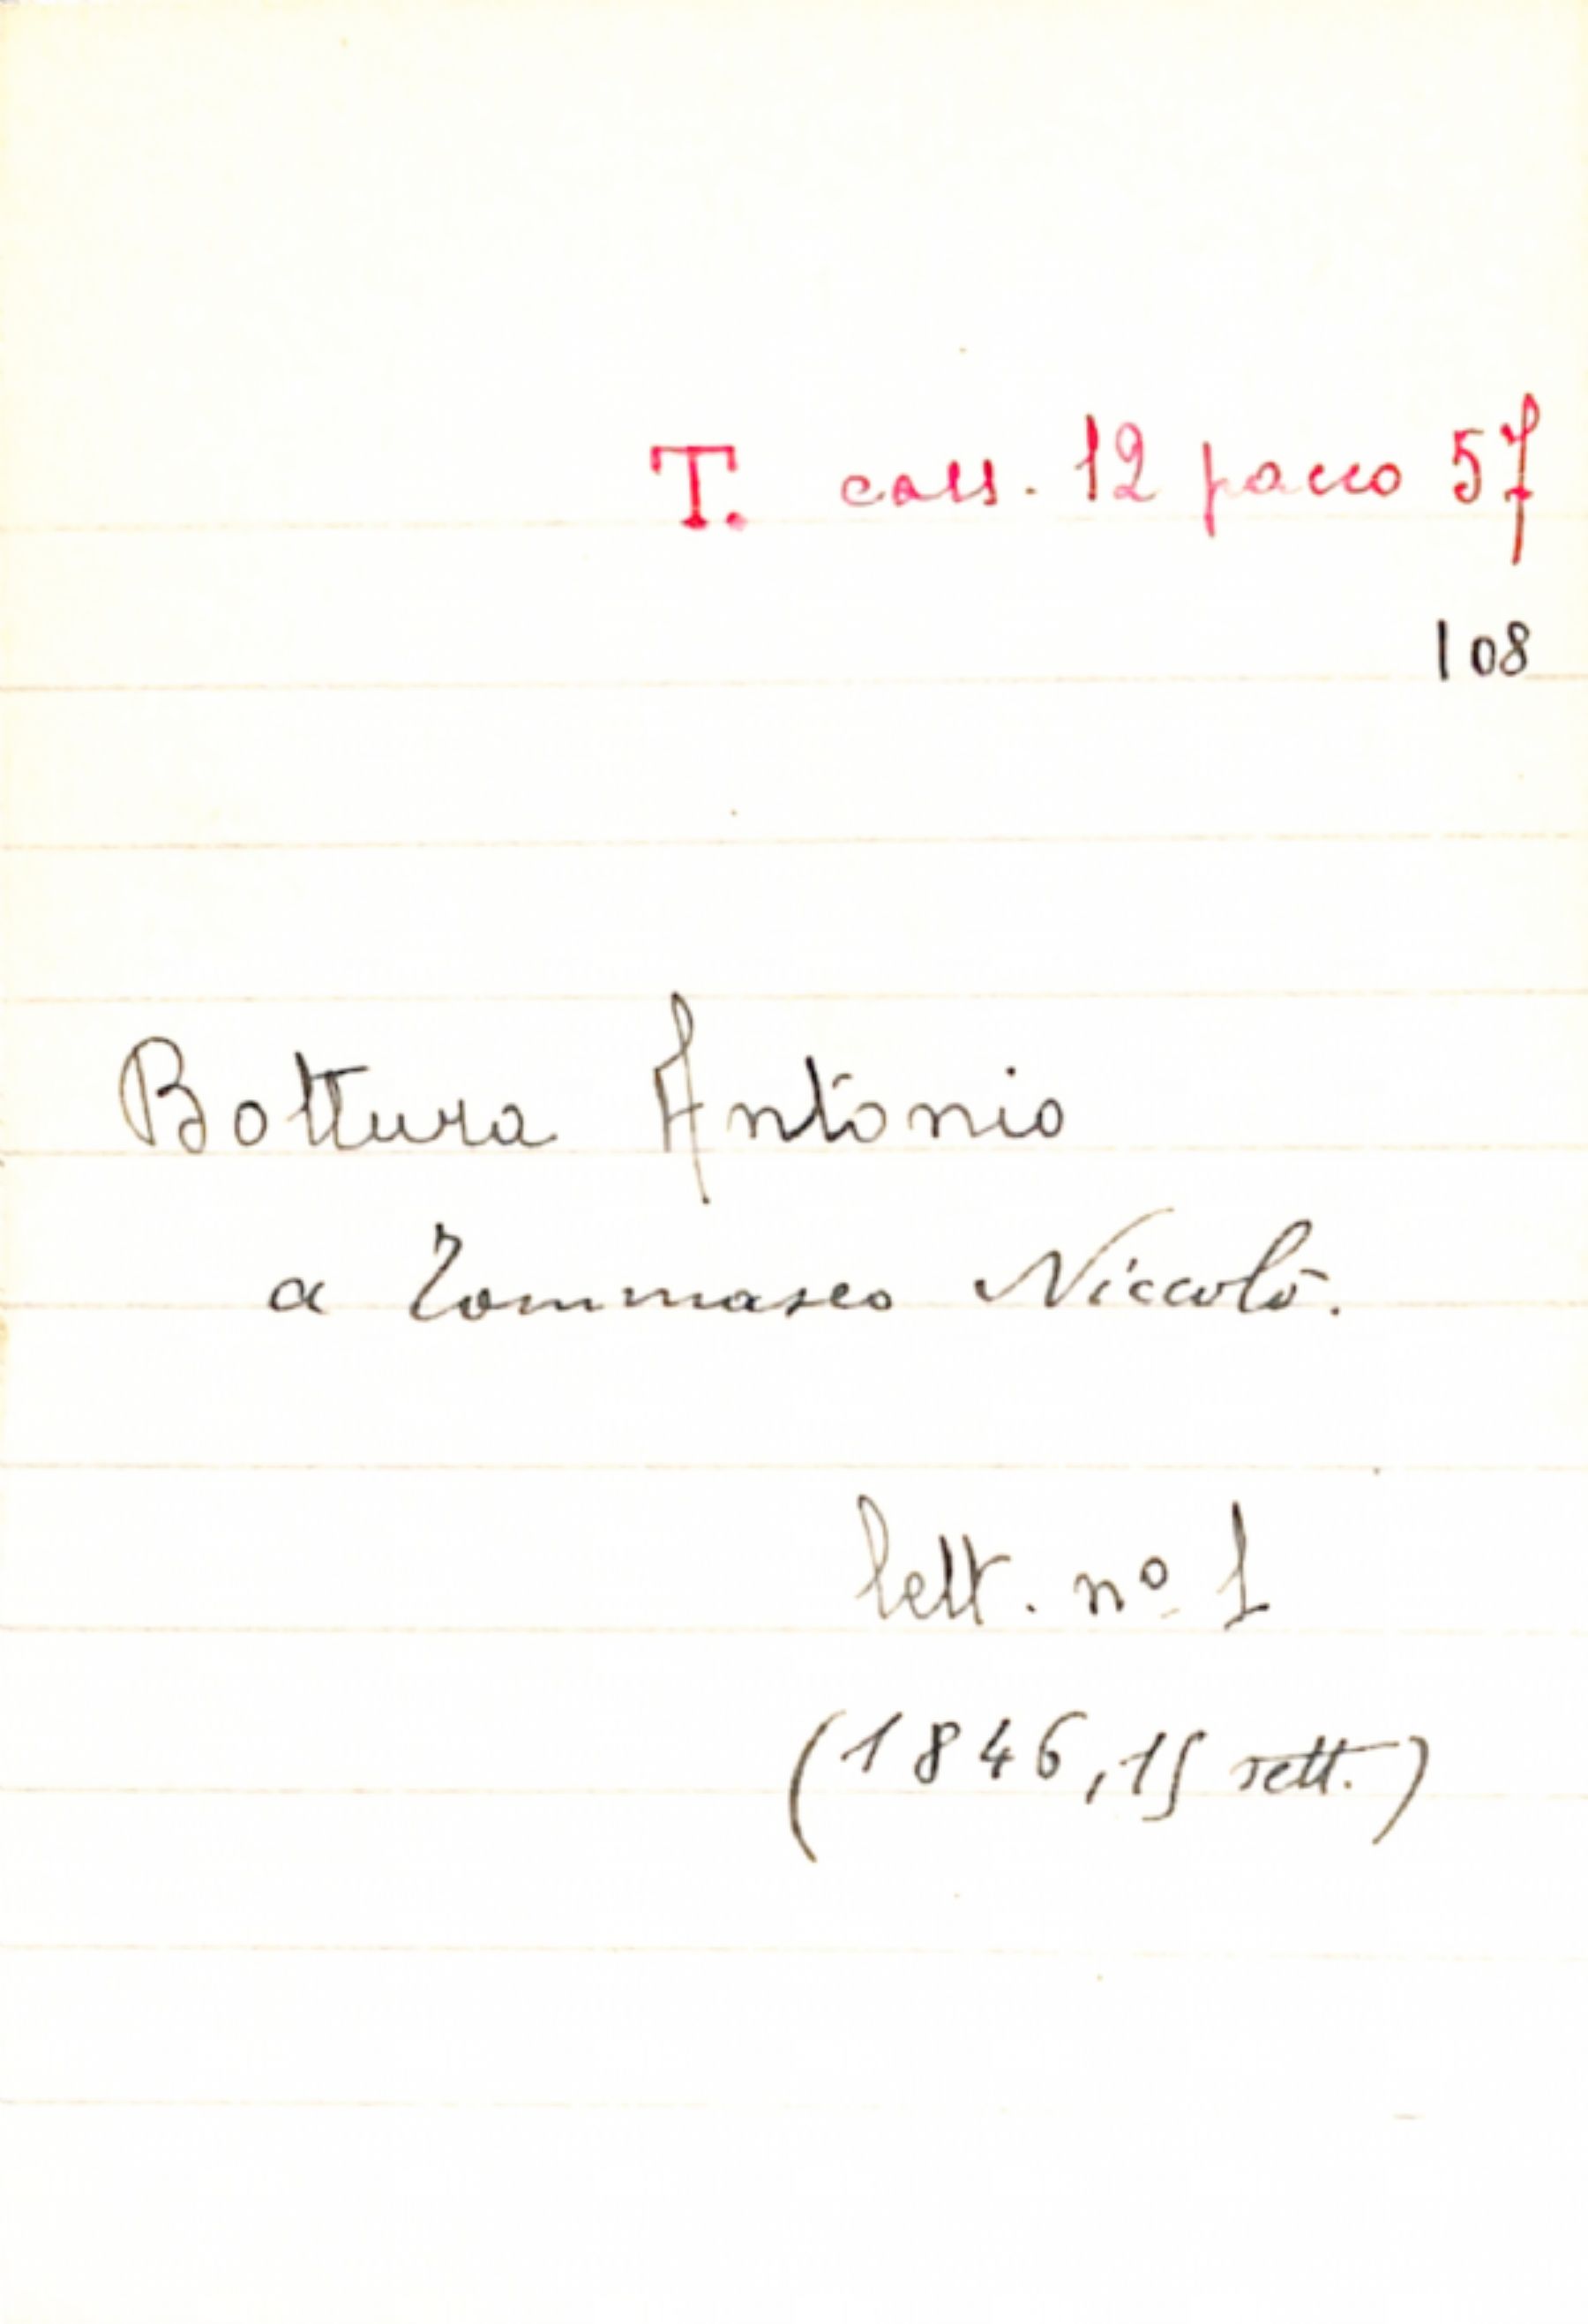 T. cass. 12 pacco 57
108
Bottura Antonio
a Tommaseo Niccolò.
lett. nº 1
(1846, 15 sett.)